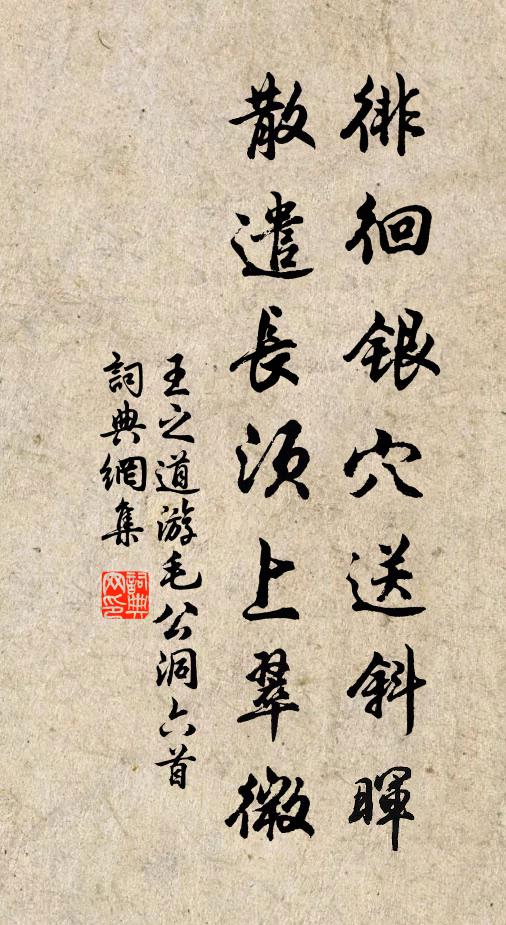 徘徊銀穴送斜暉
散遣長須上翠微
王之道游毛公洞六首
詞典網集
詞典网印